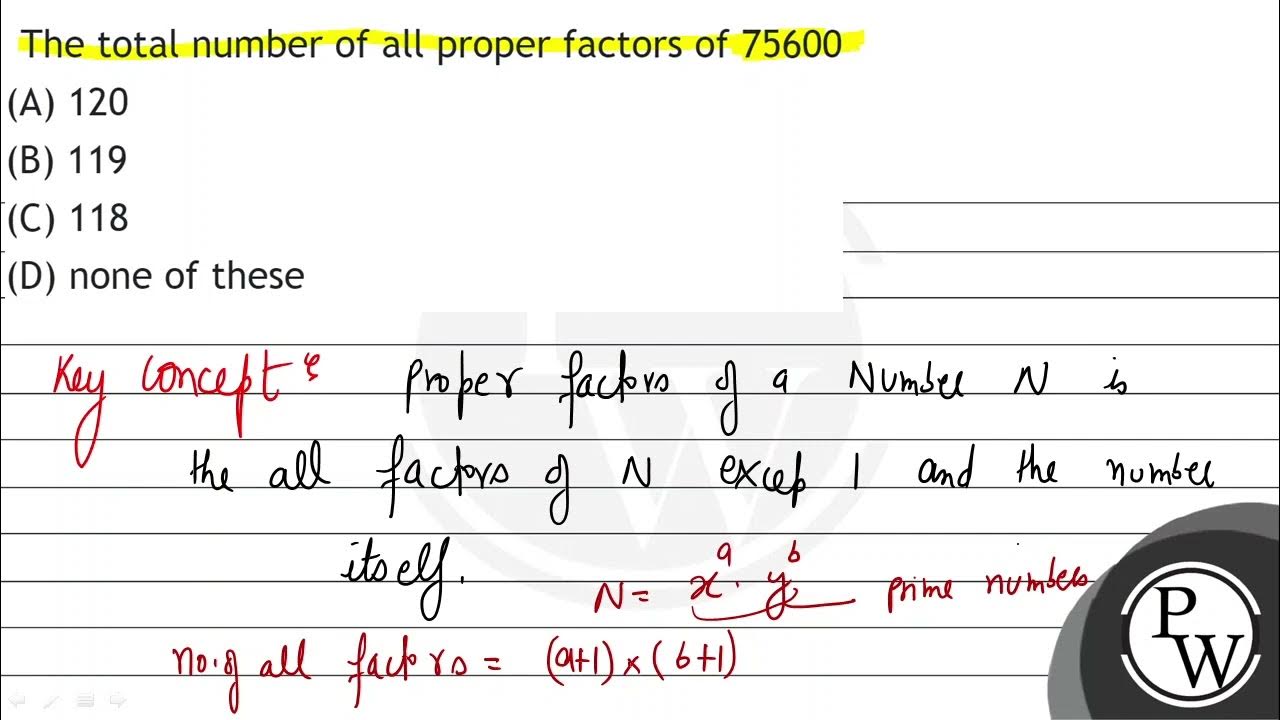 The total number of all proper factors of 75600
(A) 120
(B) 119
(C) 118
(D) none of these
Key Concept : Proper factors of a Number N is
the all factors of N excep 1 and the number
itself.
N = x^a . y^b prime numbers
no. of all factors = (a+1) × (b+1)
P
W